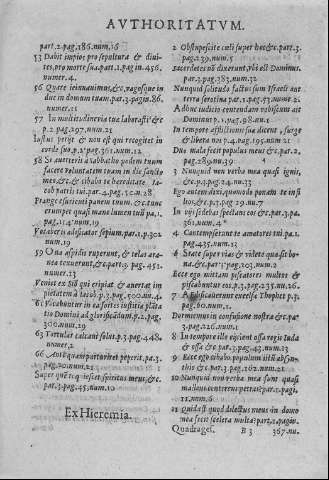 AVTHORITATVM.
part.2.pag.186.num.16
53 Dabit impios pro sepultura & diuites, pro morte sua.part.1.pag.in.456.
numer.4.
56 Quare ieiunauimus,&c.vaque in
die in domini tuam.part.3.pagin.86.
numer.21
57 In multitudine via tuæ laborasti &c
p.2 pag.297.num.21
Iustus perijt & non est qui recogitet in
corde suo.p.2.pag.361.num.13
58 Si auerteris a sabbatho pedem tuum
facere voluntatem tuam in die sancto
meo,&c.& cibabo te hæreditate Iacob patris tui.par.4.pag.120.num.28
Frange esurienti panem tuum,&c. tunc
erumpet quasi mane lumen tuum pa.1.
pag.114.numer.19
Vocaberis ædificator sepium.part.1.p.302
num.19
59 Oua aspidis ruperunt, & telas araneæ texuerunt,&c.part.3. pag.452.
numer.23
Veniet ex Sion qui eripiat & auertat impietatem à Iacob.p.3.pag.500.nu.4.
61 Vocabuntur in ea fortes iustitiæ plantatio Domini ad glorificandum.p.2.pag.
300.num.29
63 Torcular calcaui solus.p.pag.448
numer.2
66 Antequam parturiret peperit.pa.3.
pag.20.num.21
Super quem requiescet spiritus meus,&c.
part.3.pag.45.num.10
Ex Hieremia.
2 Obstupescite cœli super hoc &c.part.3.
pag.239.num.5
Sacerdotes nō dixerunt, vbi est Dominus.
par.3.pag.383.num.32
Nunquid solitudo factus sum Israeli aut
terra serotina par.1.pag.53.numer.2
Adhuc iudicio contendam vobiscum ait
Dominus p.1.pag.98.nu.1
In tempore afflictionis suæ dicent, surge
& libera nos p.4.pag.195.num.21
Duo mala fecit populus meus &c.par.2.
pag.289.nu.39
3 Nunquid non verba mea quasi ignis,
&c.p.3.pag.24.nu.33
Ego autem dixi, quomodo ponam te in filios,&c.p.3.pag 29.nu.7
In vijs sedebas spectans eos &c.par.3.pa.
361.num.4
4 Contempserunt te amatores tui pa.1.
pag.435.num.13
6 State super vias & videte quæ sit bona.&c.par.3.pag.203.num.2
Ecce ego mittam piscatores multos &
piscabuntur eos.p.3.pag.235.nu.26
7 Ædificauerunt excelsa Thophet p.3.
pag.60.num.1.
Dormiemus in confusione nostra &c.par.3.pag.226.num.1
8 In tempore illo eijcient ossa regis Iuda
& ossa &c.par.3.pag.43.num.33
9 Ecce ego cibabo populum istū absynthio &c.par.3.pag.262.num.21
10 Nunquid non verba mea sunt quasi
malleus conterens petras? par.1.pag.
11.num.6
11 Quid est quod dilectus meus in domo
mea fecit scelera multa? part.1.pag.
Quadrages. B 3 367.nu.